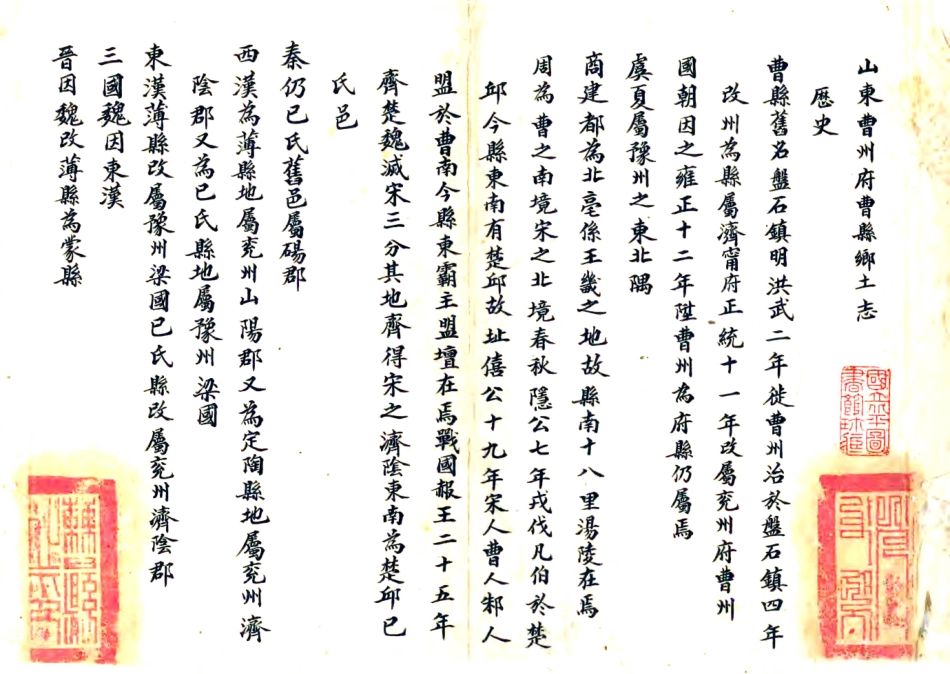 山東曹州府曹縣鄉土志
歷史
曹縣舊名盤石鎮明洪武二年徙曹州治於盤石鎮四年
改州為縣屬濟甯府正統十一年改屬兗州府曹州
國朝因之雍正十二年陞曹州為府縣仍屬焉
虞夏屬豫州之東北隅
商建都為北亳係王畿之地故縣南十八里湯陵在焉
周為曹之南境宋之北境春秋隱公七年戎伐凡伯於楚
邱今縣東南有楚邱故址僖公十九年宋人曹人邾人
盟於曹南今縣東霸主盟壇在焉戰國報王二十五年
齊楚魏滅宋三分其地齊得宋之濟陰東南為楚邱已
氏邑
秦仍已氏舊邑屬碭郡
西漢為薄縣地屬兗州山陽郡又為定陶縣地屬兗州濟
陰郡又為已氏縣地屬豫州梁國
東漢薄縣改屬豫州梁國已氏縣改屬兗州濟陰郡
三國魏因東漢
晉因魏改薄縣為蒙縣
國立圖
書館珍藏